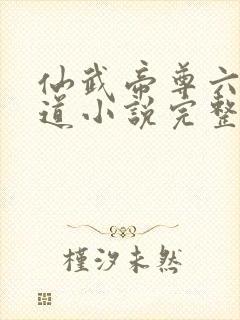 仙武帝尊六
道小說完整
槿汐未然